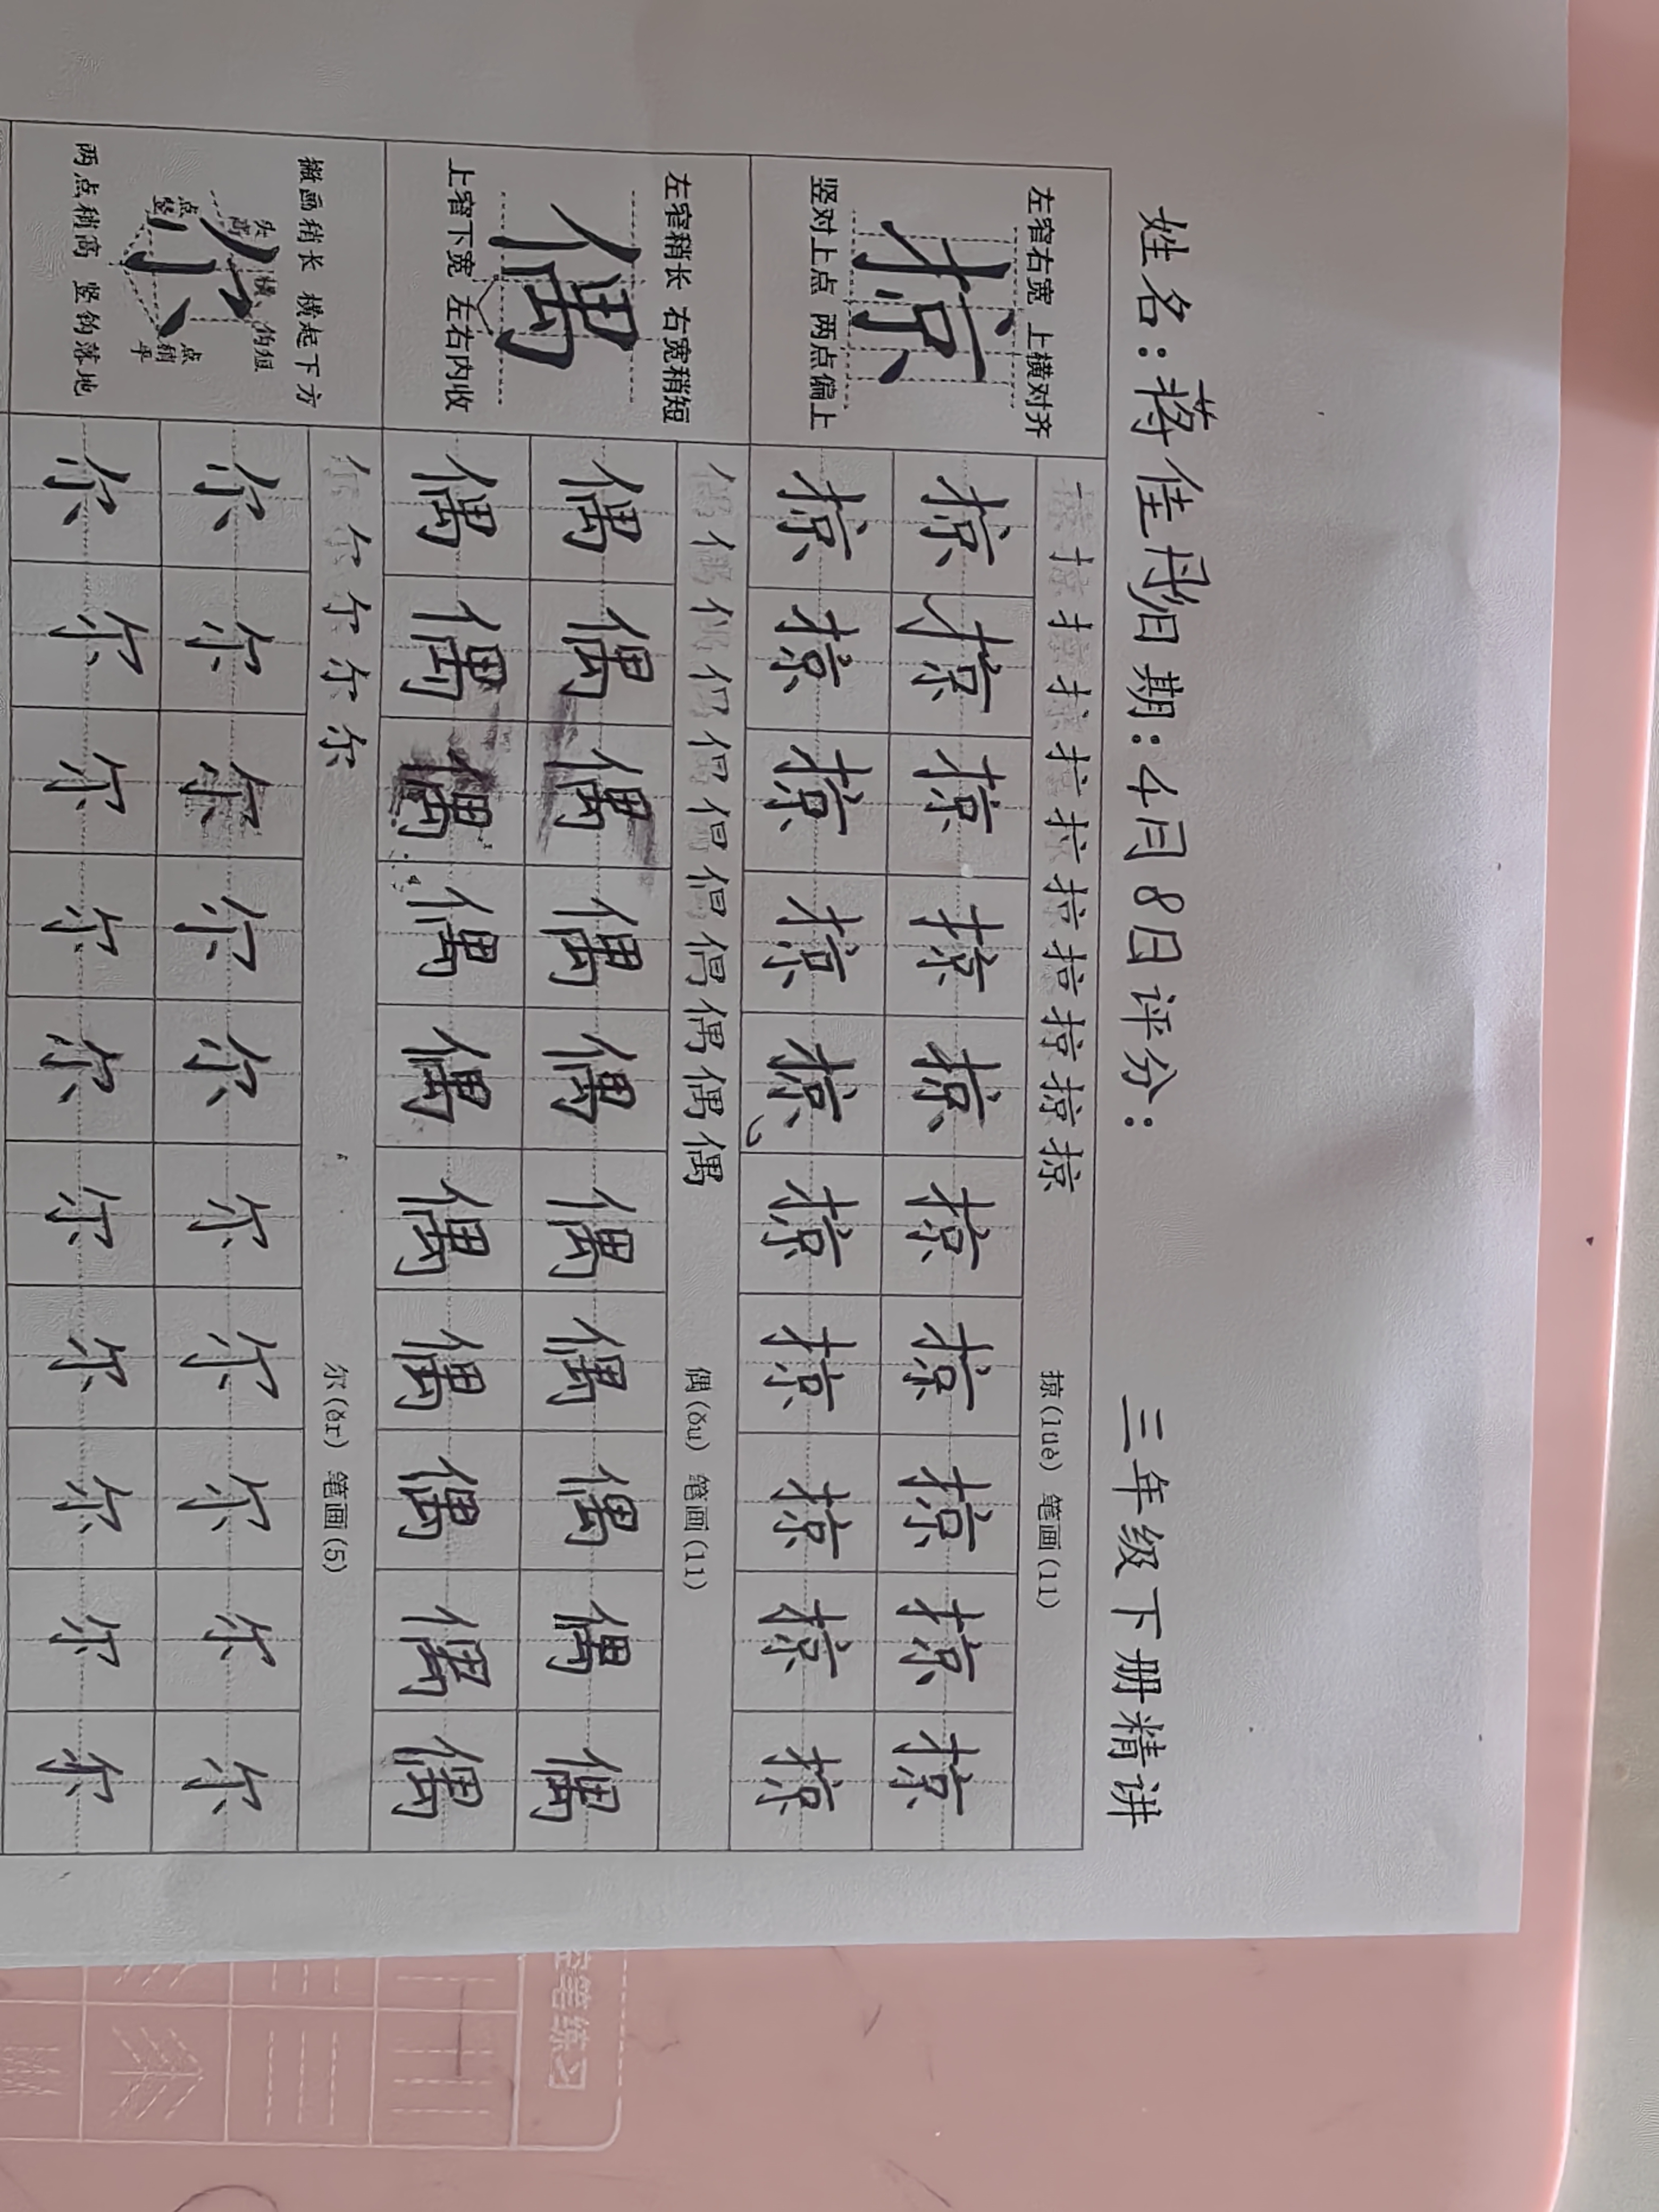 姓名:蒋佳丹日期:4月8日评分: 三年级下册精讲
左窄右宽 上横对齐
掠
竖对上点 两点偏上
掠(lüè) 笔画(11)
掠掠掠掠掠掠掠掠掠掠
掠掠掠掠掠掠掠掠掠掠
左窄稍长 右宽稍短
偶
上窄下宽 左右内收
偶(ǒu) 笔画(11)
偶偶偶偶偶偶偶偶偶偶
偶偶偶偶偶偶偶偶偶偶
撇画稍长 横起下方
尔
两点稍高 竖钩落地
尔(ěr) 笔画(5)
尔尔尔尔尔尔尔尔尔尔
尔尔尔尔尔尔尔尔尔尔
控笔练习